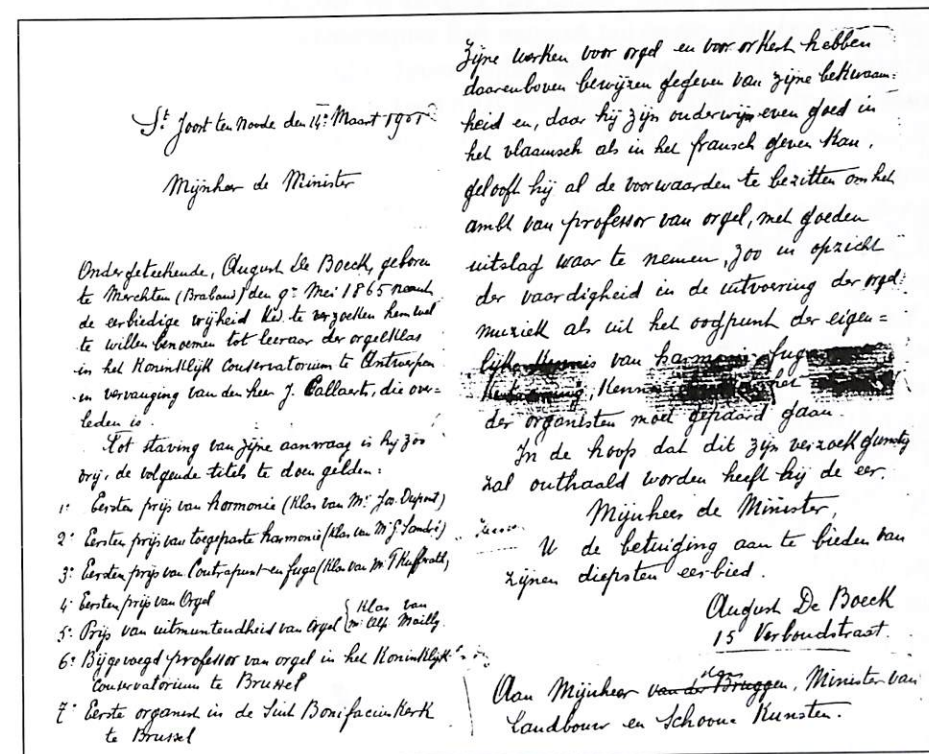 St Joost ten Noode den 14n Maart 1901
Mijnheer de Minister
Ondergeteekende, August De Boeck, geboren
te Merchtem (Braband) den 9n Mei 1865 neemt
de eerbiedige vrijheid UEd. te verzoeken hem wel
te willen benoemen tot leeraar der orgelklas
in het Koninklijk Conservatorium te Antwerpen
in vervanging van den heer J. Callaerts, die over=
leden is.
Tot staving van zijne aanvraag is hij zoo
vrij, de volgende titels te doen gelden:
1° Eersten prijs van harmonie (Klas van Mr Jos. Dupont)
2° Eersten prijs van toegepaste harmonie (Klas van Mr G. Sandré)
3° Eersten prijs van Contrapunt en fuga (Klas van Mr F. Kufferath)
4° Eersten prijs van Orgel
5° Prijs van uitmuntendheid van Orgel { Klas van Mr Alp. Mailly
6° Bijgevoegd professor van orgel in het Koninklijk
Conservatorium te Brussel
7° Eerste organist in de Sint Bonifacius Kerk
te Brussel
Zijne werken voor orgel en voor orkest hebben
daarenboven bewijzen gegeven van zijne bekwaam=
heid en, daar hij zijn onderwijs even goed in
het vlaamsch als in het fransch geven kan,
gelooft hij al de voorwaarden te bezitten om het
ambt van professor van orgel, met goeden
uitslag waar te nemen, zoo in opzicht
der vaardigheid in de uitvoering der orgel=
muziek als uit het oogpunt der eigen=
lijke kennis van harmonie, fuga
het
der organisten moet gepaard gaan.
In de hoop dat dit zijn verzoek gunstig
zal onthaald worden heeft hij de eer,
Mijnheer de Minister,
U de betuiging aan te bieden van
zijnen diepsten eerbied.
August De Boeck
15 Verbondstraat.
Aan Mijnheer van der Bruggen, Minister van
Landbouw en Schoone Kunsten.